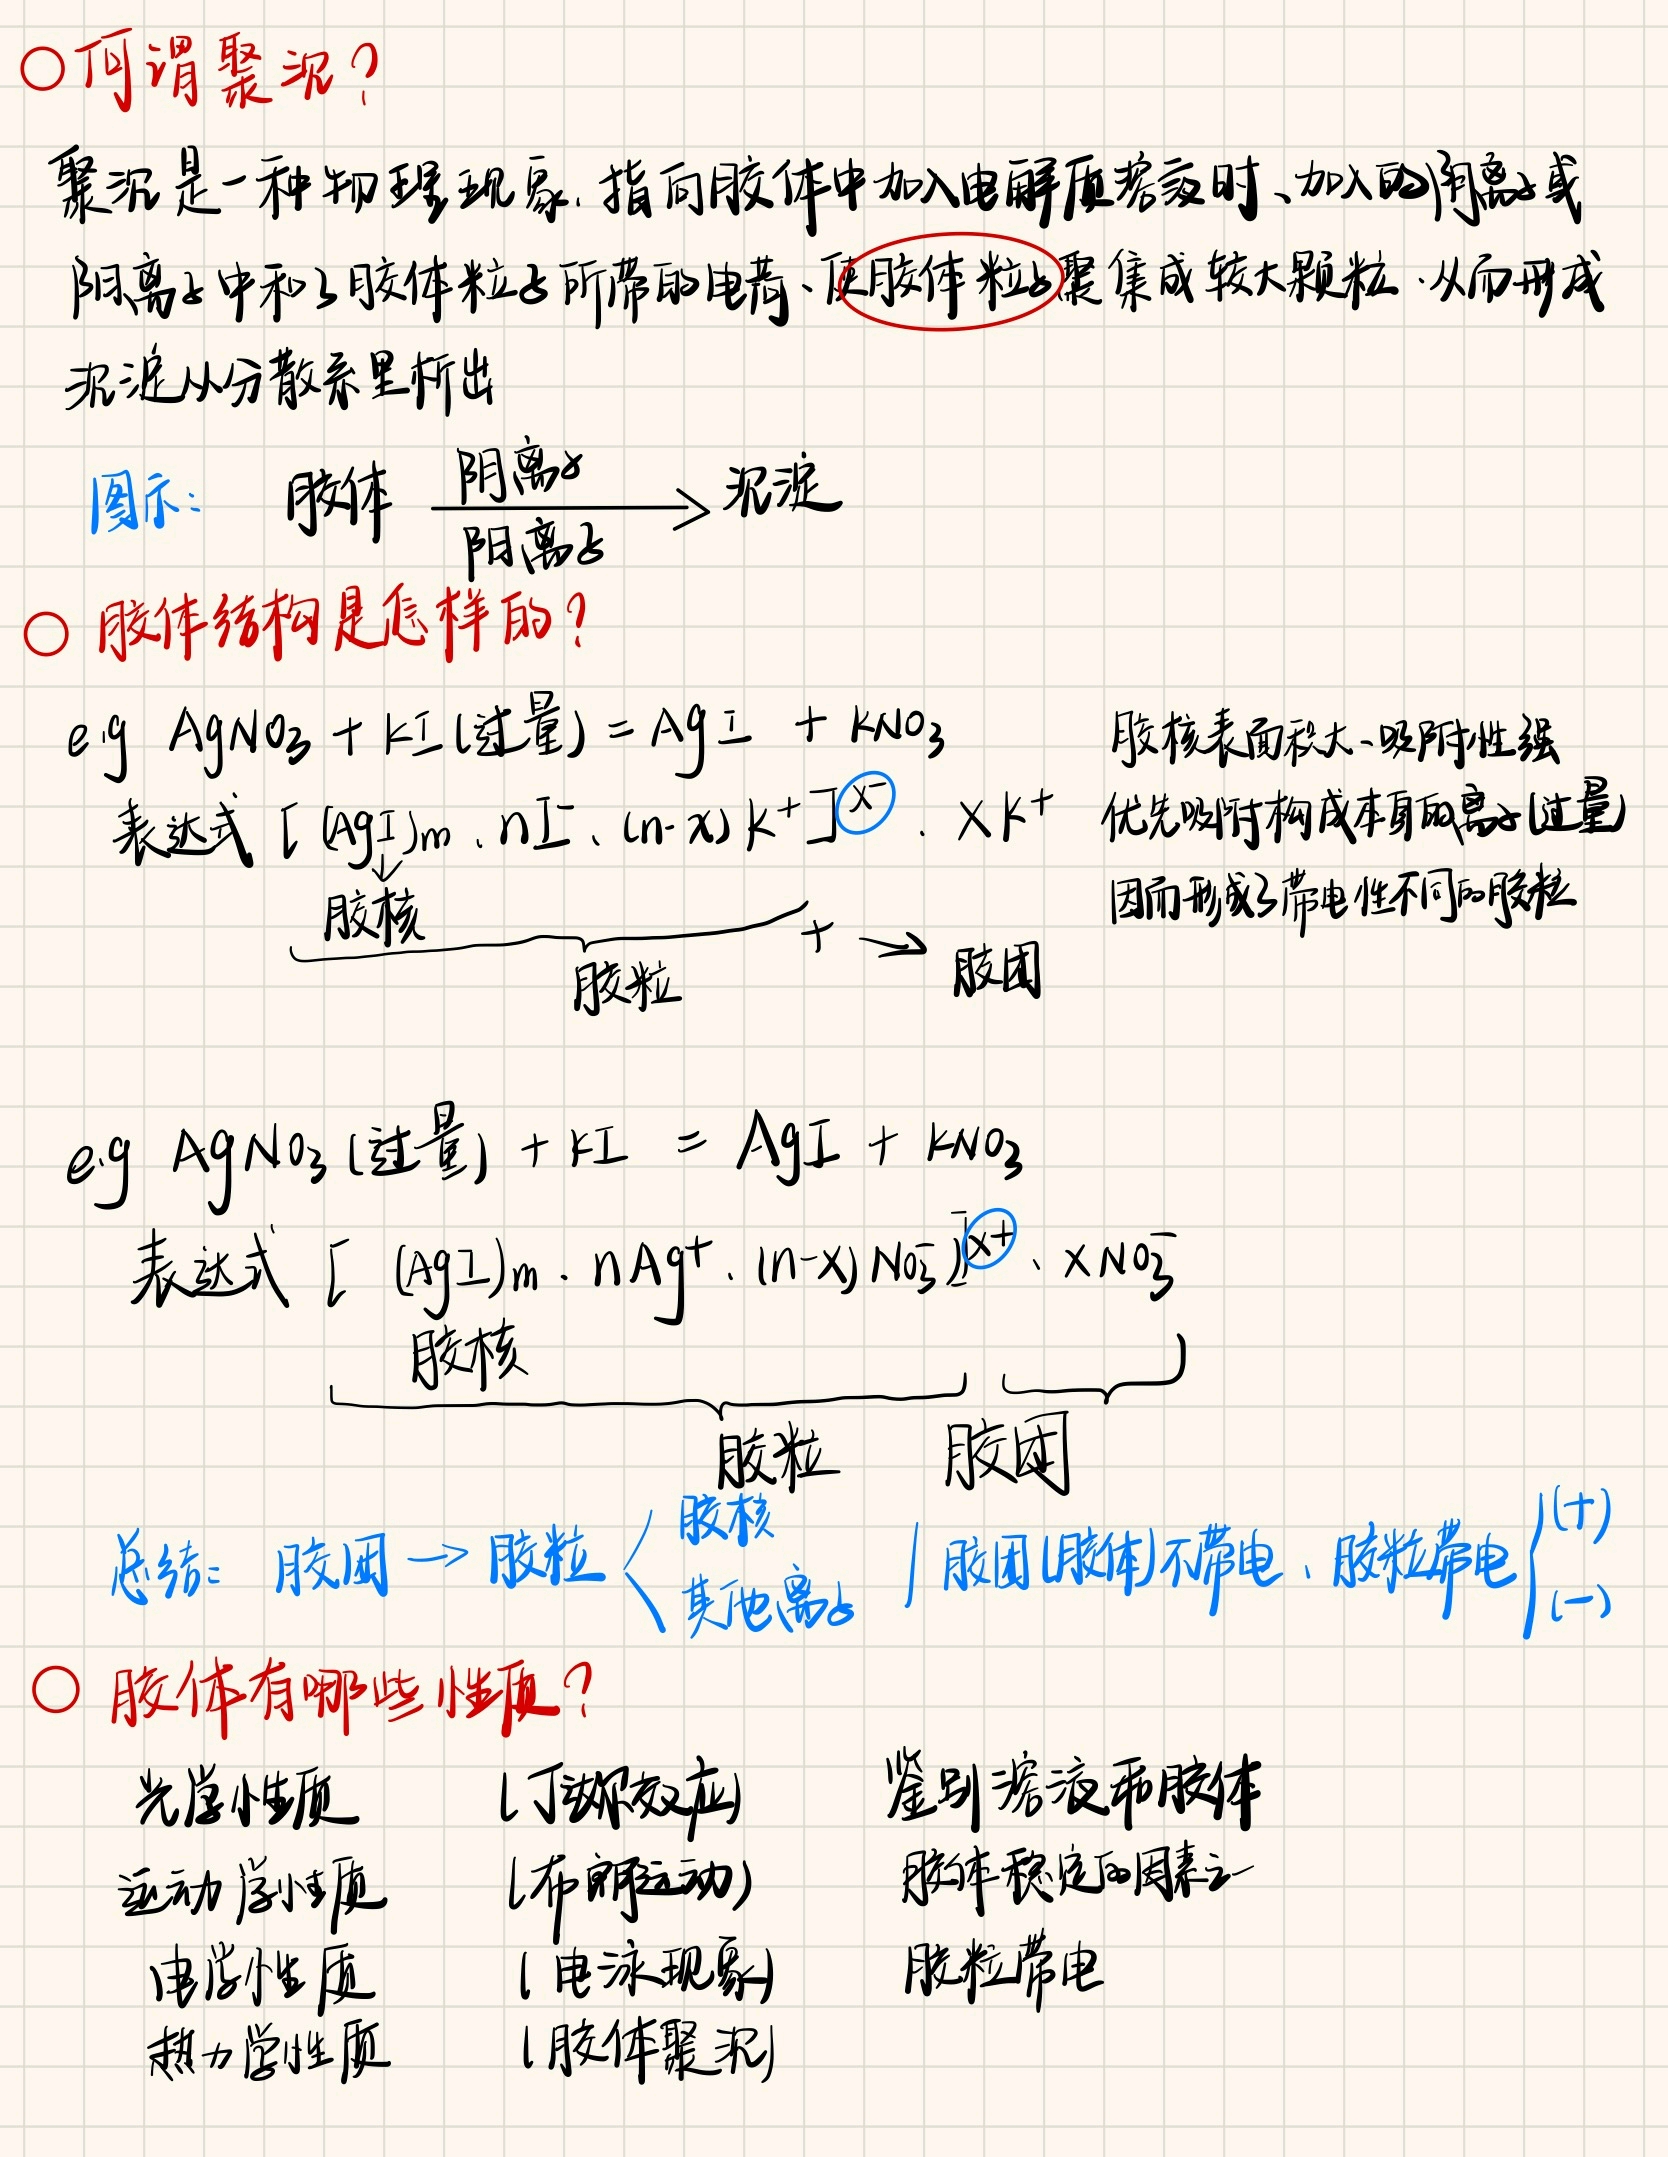 ○何谓聚沉?
聚沉是一种物理现象,指向胶体中加入电解质溶液时、加入的阴离子或
阳离子中和了胶体粒子所带的电荷、使胶体粒子聚集成较大颗粒.从而形成
沉淀从分散系里析出
图示: 胶体 阴离子 → 沉淀
阳离子
○ 胶体结构是怎样的?
e.g AgNO₃ + KI (过量) = AgI + KNO₃
胶核表面积大、吸附性强
表达式 [ (AgI)m . nI⁻ . (n-x) K⁺ ]ˣ⁻ . xK⁺
优先吸附构成本身的离子(过量)
因而形成了带电性不同的胶粒
胶核
+ → 胶团
胶粒
e.g AgNO₃ (过量) + KI = AgI + KNO₃
表达式 [ (AgI)m . nAg⁺ . (n-x) NO₃⁻ )]ˣ⁺ . xNO₃⁻
胶核
胶粒 胶团
总结: 胶团 → 胶粒 < 胶核 / 胶团(胶体)不带电、胶粒带电 (+)
其他离子 (-)
○ 胶体有哪些性质?
光学性质 (丁达尔效应) 鉴别溶液和胶体
运动学性质 (布朗运动) 胶体稳定的因素之一
电学性质 (电泳现象) 胶粒带电
热力学性质 (胶体聚沉)